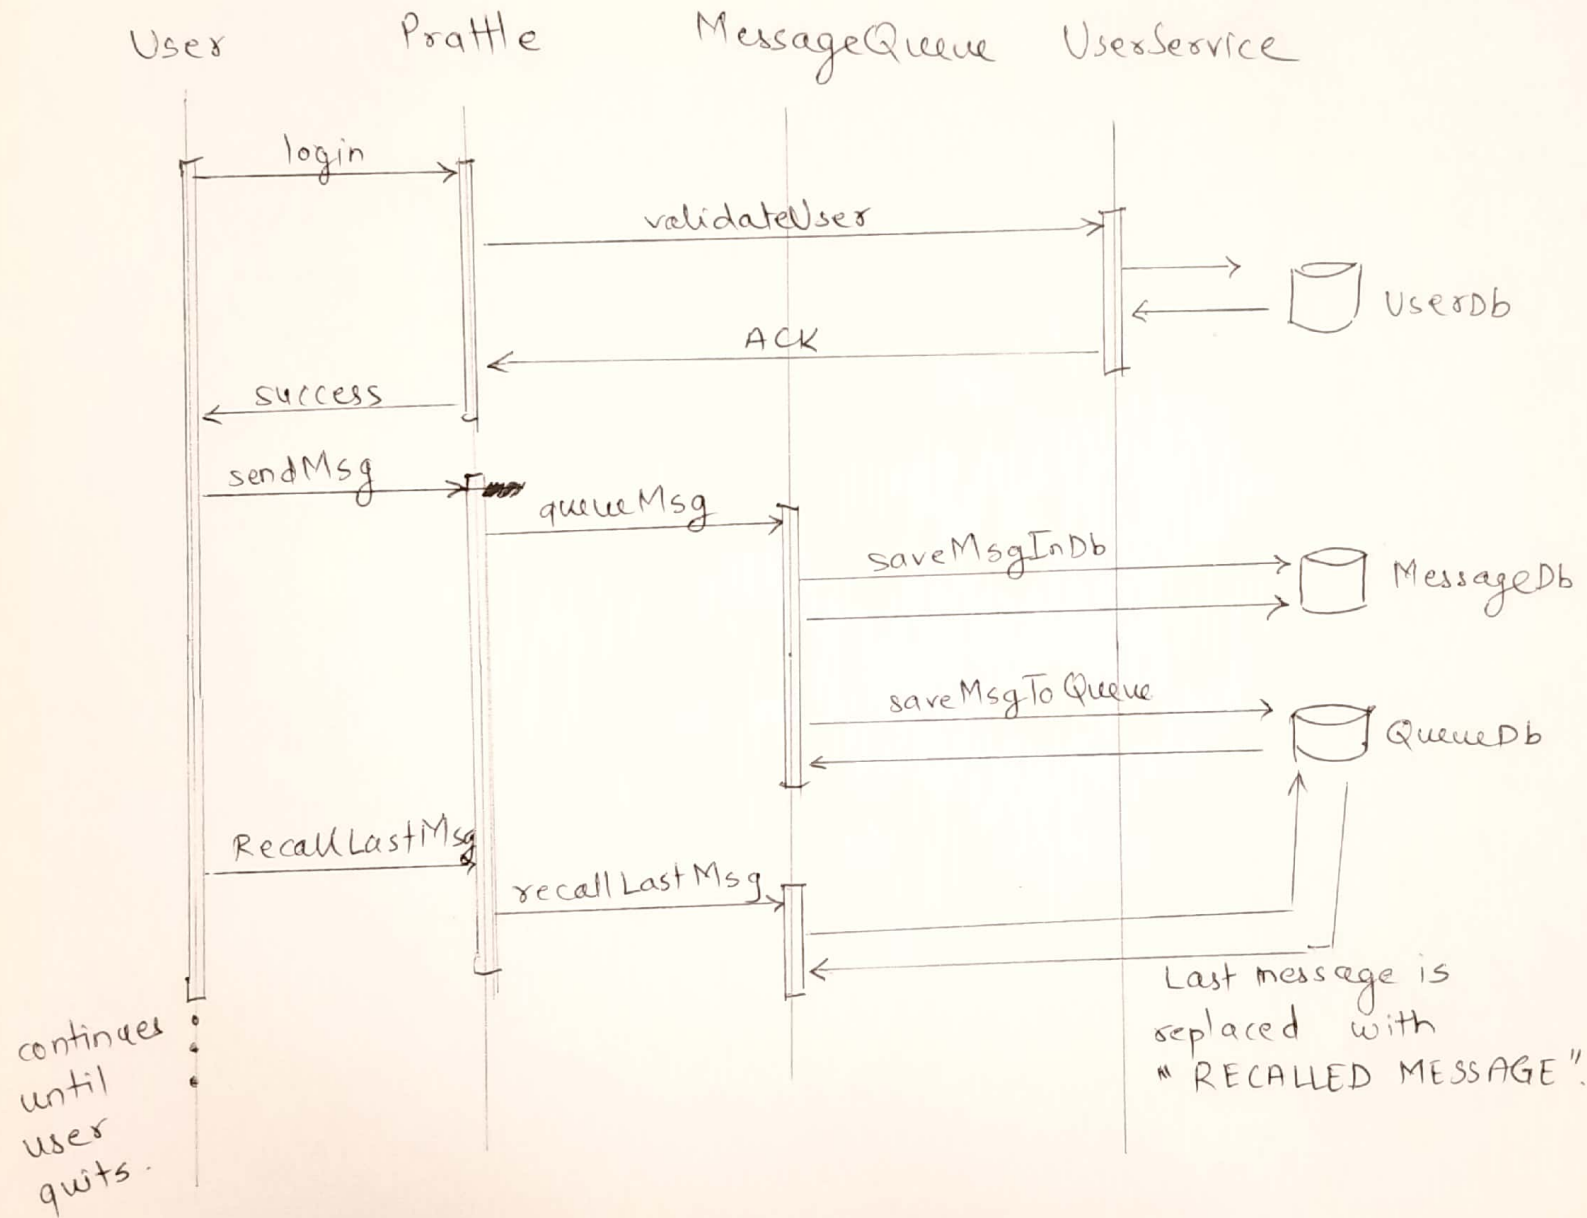 User Prattle MessageQueue UserService
login
validateUser
UserDb
ACK
success
sendMsg
queueMsg
saveMsgInDb
MessageDb
saveMsgToQueue
QueueDb
RecallLastMsg
recallLastMsg
Last message is
replaced with
"RECALLED MESSAGE".
continues
until
user
quits.